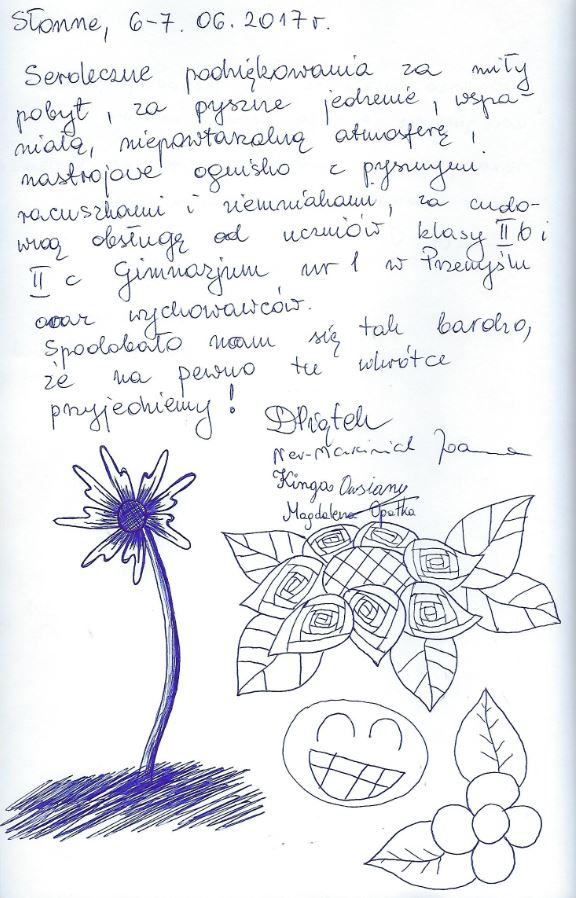 Słonne, 6-7. 06. 2017 r.
Serdeczne podziękowania za miły
pobyt, za pyszne jedzenie, wspa-
niałą, niepowtarzalną atmosferę,
nastrojowe ognisko z pysznymi
racuszkami i ziemniakami, za cudo-
wną obsługę od uczniów klasy II b i
II c Gimnazjum nr 1 w Przemyślu
oraz wychowawców.
Spodobało nam się tak bardzo,
że na pewno tu wkrótce
przyjedziemy!
DPiątek
Kinga
Magdalena Opałka